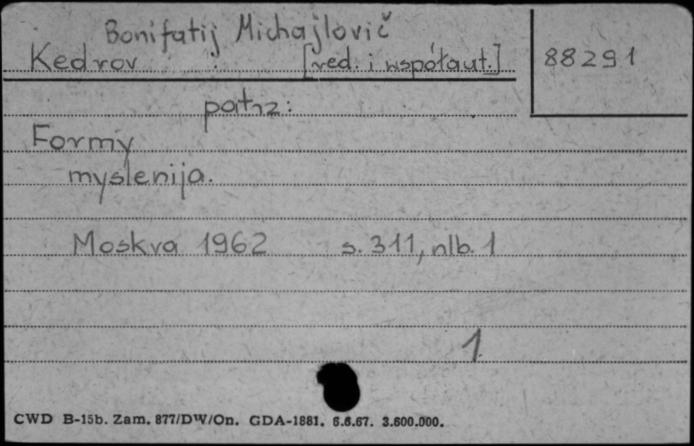 Bonifatij Michajlovič
Kedrov [red. i współaut.]
88291
patrz:
Formy
myslenija.
Moskva 1962 s. 311, nlb. 1
1
CWD B-15b. Zam. 877/DW/On. GDA-1881. 6.6.67. 3.600.000.